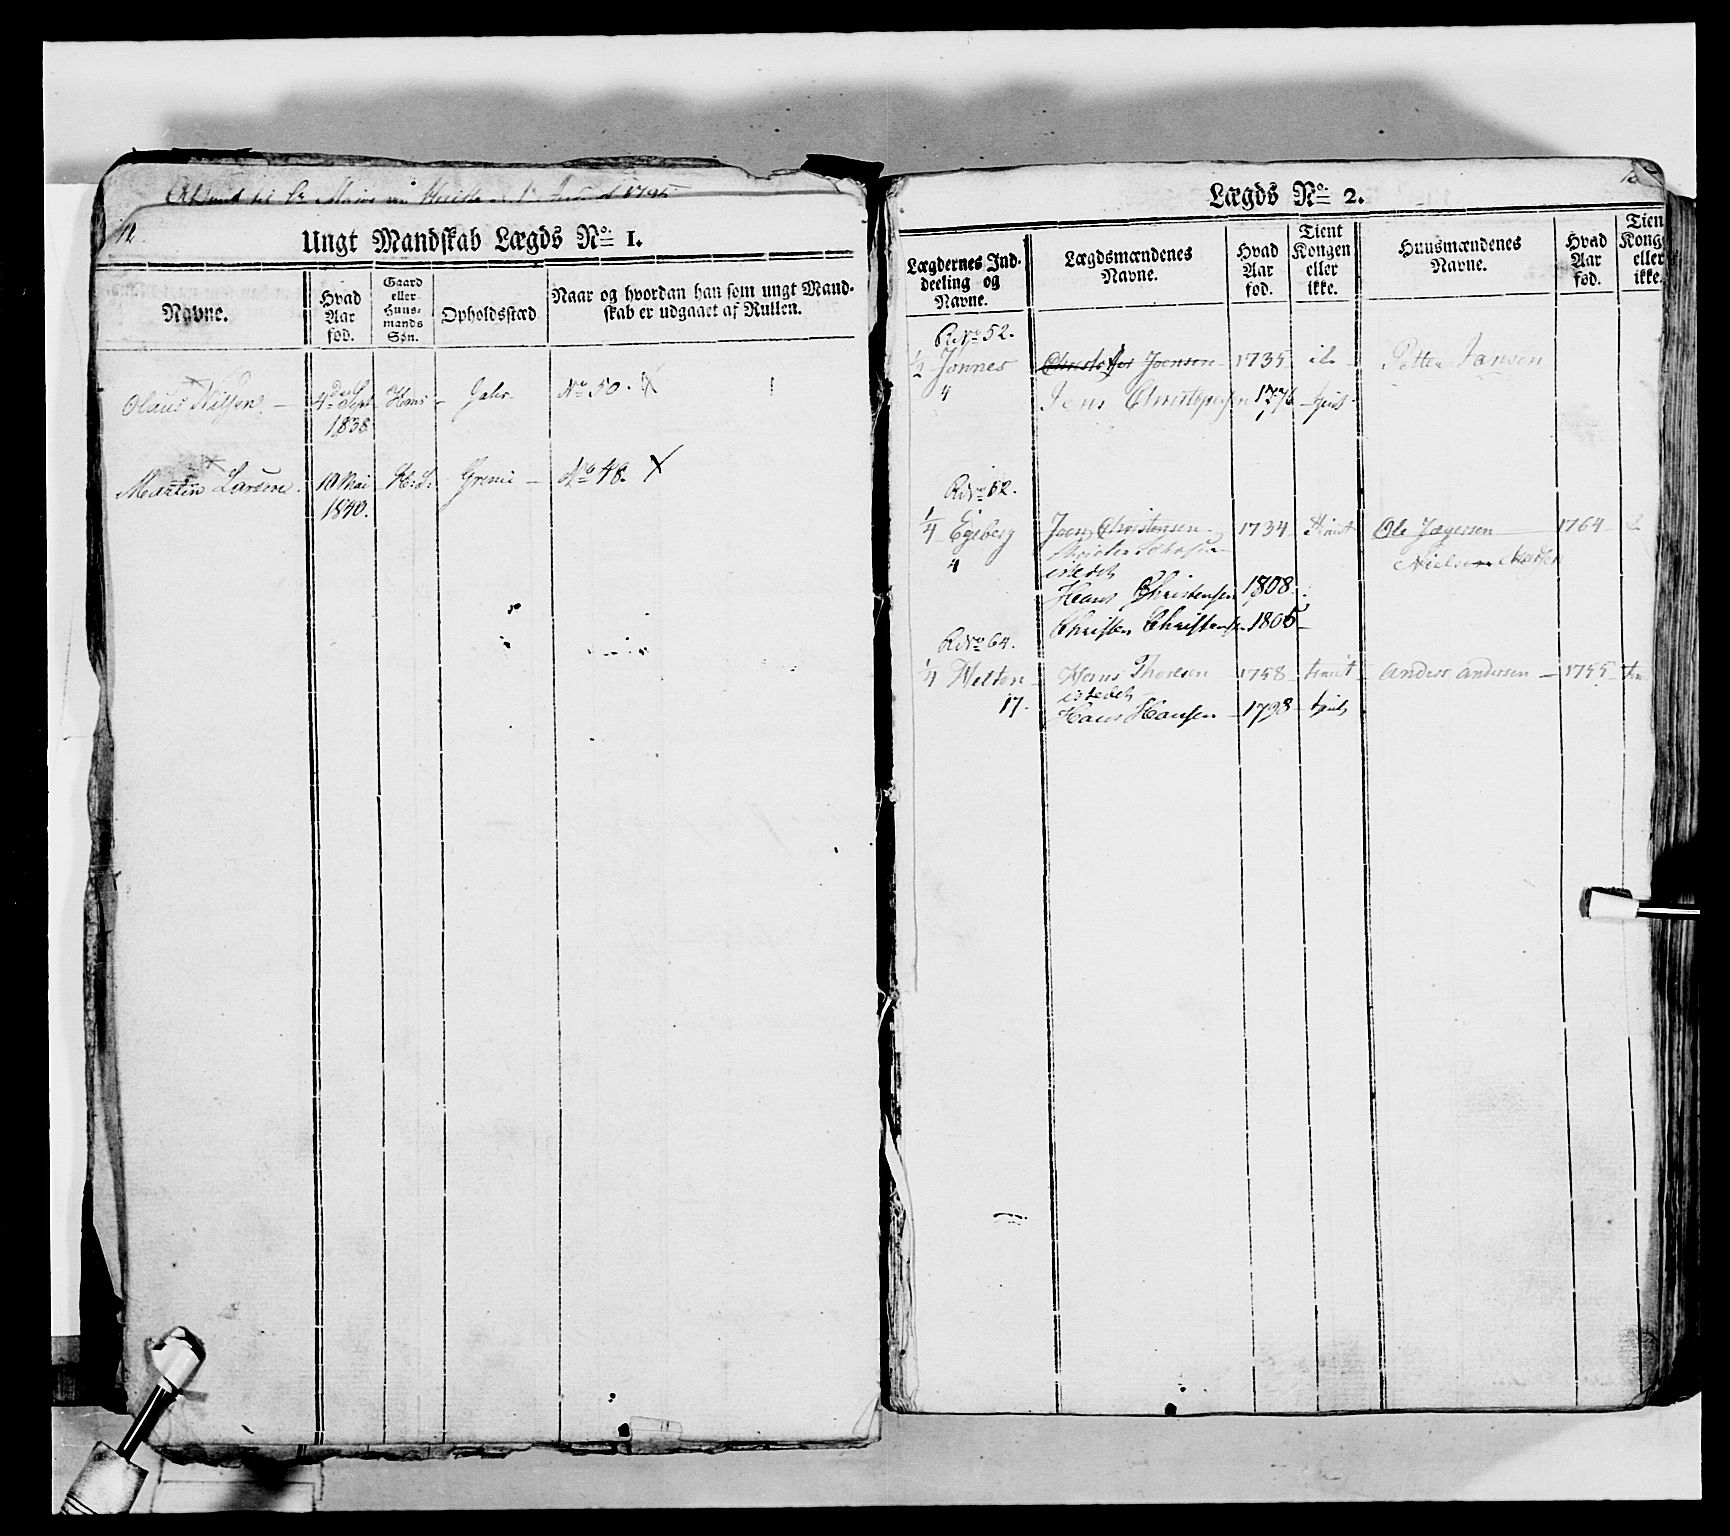 12.
Ungt Mandskab Lægds No. 1.
Navne.
Hvad Aar fød.
Gaard eller Huusmands Søn.
Opholdsstæd
Naar og hvordan han som ungt Mandskab er udgaaet af Rullen.
Olaus Nilsen — 4de Sept Huus — No 50. X
1838
Martin Larsen. 10 Mai H: S: — No 48. X
1840.
Lægds No 2.
Lægdernes Inddeeling og Navne.
Lægdsmændenes Navne.
Hvad Aar fød.
Tient Kongen eller ikke.
Huusmændenes Navne.
Hvad Aar fød.
Tien Konge eller ikke.
R. No 52.
1/2 Jonnes Christopher Joensen 1735 Petter Jansen
4 Jens 1776
R. No 62.
1/4 Egeberg Joen Christensen 1734 tient Ole 1764
4
istedet
Hans Christensen 1808
Christen Christensen 1805
R. No 64.
1/4 Welton Hans Thoresen 1758 tient Anders Andersen — 1755
istedet
17. Hans Hansen — 1798